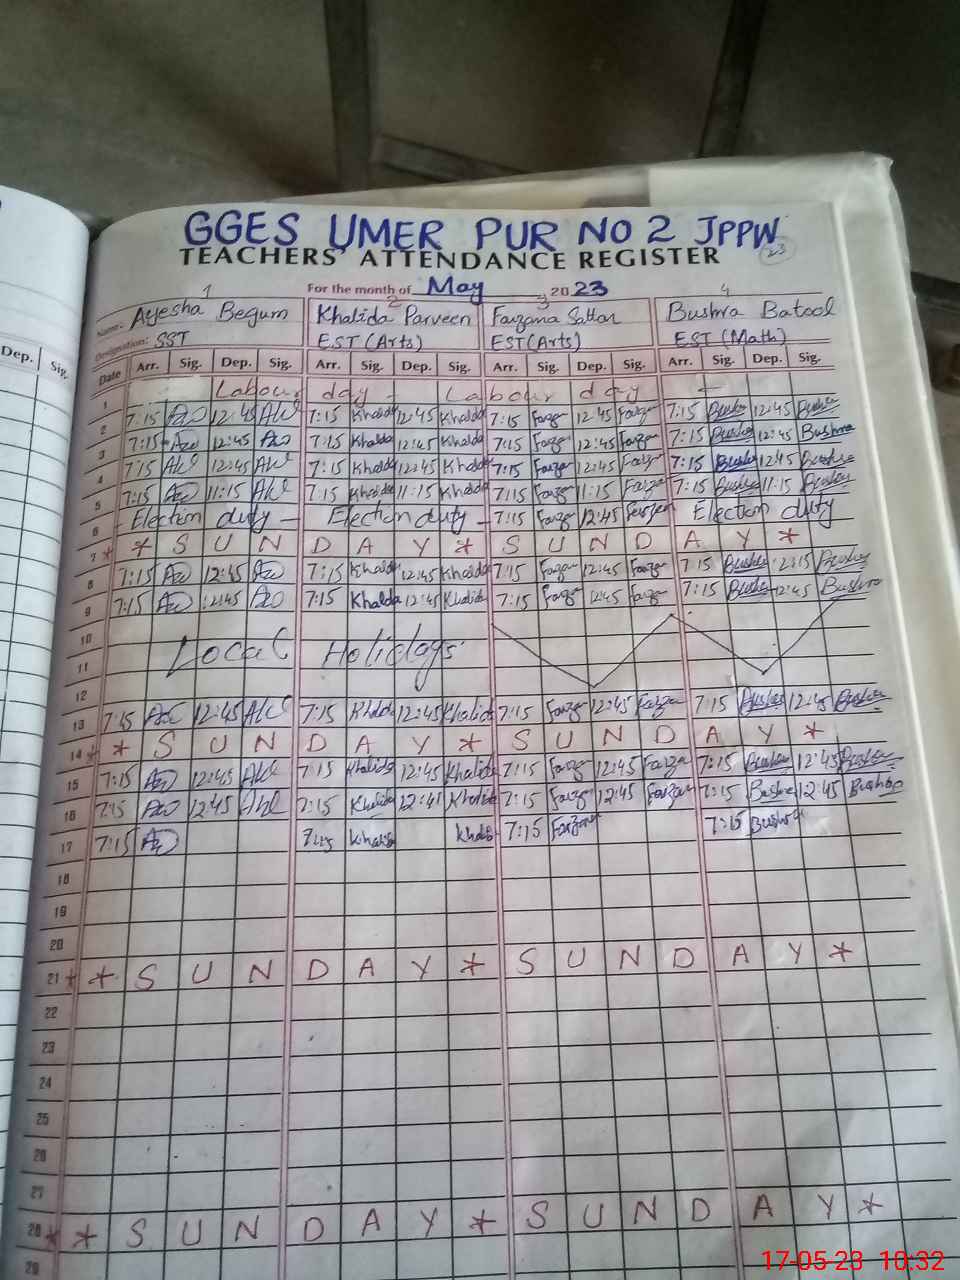 GGES UMER PUR NO 2 JPPW
TEACHERS' ATTENDANCE REGISTER 23
For the month of May 2023
1 2 3 4
Name: Ayesha Begum Khalida Parveen Farzana Sattar Bushra Batool
Designation: SST EST (Arts) EST (Arts) EST (Math)
Dep. Sig. Date Arr. Sig. Dep. Sig. Arr. Sig. Dep. Sig. Arr. Sig. Dep. Sig. Arr. Sig. Dep. Sig.
1 Labour day - Labour day -
2 7:15 12:45 7:15 Khalida 12:45 Khalida 7:15 Farzan 12:45 Farzan 7:15 Bushra 12:45 Bushra
3 7:15 12:45 7:15 Khalida 12:45 Khalida 7:15 Farzan 12:45 Farzan 7:15 Bushra 12:45 Bushra
4 7:15 12:45 7:15 Khalida 12:45 Khalida 7:15 Farzan 12:45 Farzan 7:15 Bushra 12:45 Bushra
5 7:15 11:15 7:15 Khalida 11:15 Khalida 7:15 Farzan 11:15 Farzan 7:15 Bushra 11:15 Bushra
6 - Election duty - Election duty - 7:15 Farzan 12:45 Farzan Election duty
7 * * S U N D A Y * S U N D A Y *
8 7:15 12:45 7:15 Khalida 12:45 Khalida 7:15 Farzan 12:45 Farzan 7:15 Bushra 12:15 Bushra
9 7:15 12:45 7:15 Khalda 12:45 Khalida 7:15 Farzan 12:45 Farzan 7:15 Bushra 12:45 Bushra
10
11 Local Holidays
12
13 7:15 12:45 7:15 Khalda 12:45 Khalida 7:15 Farzan 12:45 Farzan 7:15 Bushra 12:45 Bushra
14 * * S U N D A Y * S U N D A Y *
15 7:15 12:45 7:15 Khalida 12:45 Khalida 7:15 Farzan 12:45 Farzan 7:15 Bushra 12:45 Bushra
16 7:15 12:45 7:15 Khalida 12:41 Khalida 7:15 Farzan 12:45 Farzan 7:15 Bushra 12:45 Bushra
17 7:15 7:15 Khalida Khalida 7:15 Farzana 7:15 Bushra
18
19
20
21 * * S U N D A Y * S U N D A Y *
22
23
24
25
26
27
28 * * S U N D A Y * S U N D A Y *
29
17-05-23 10:32